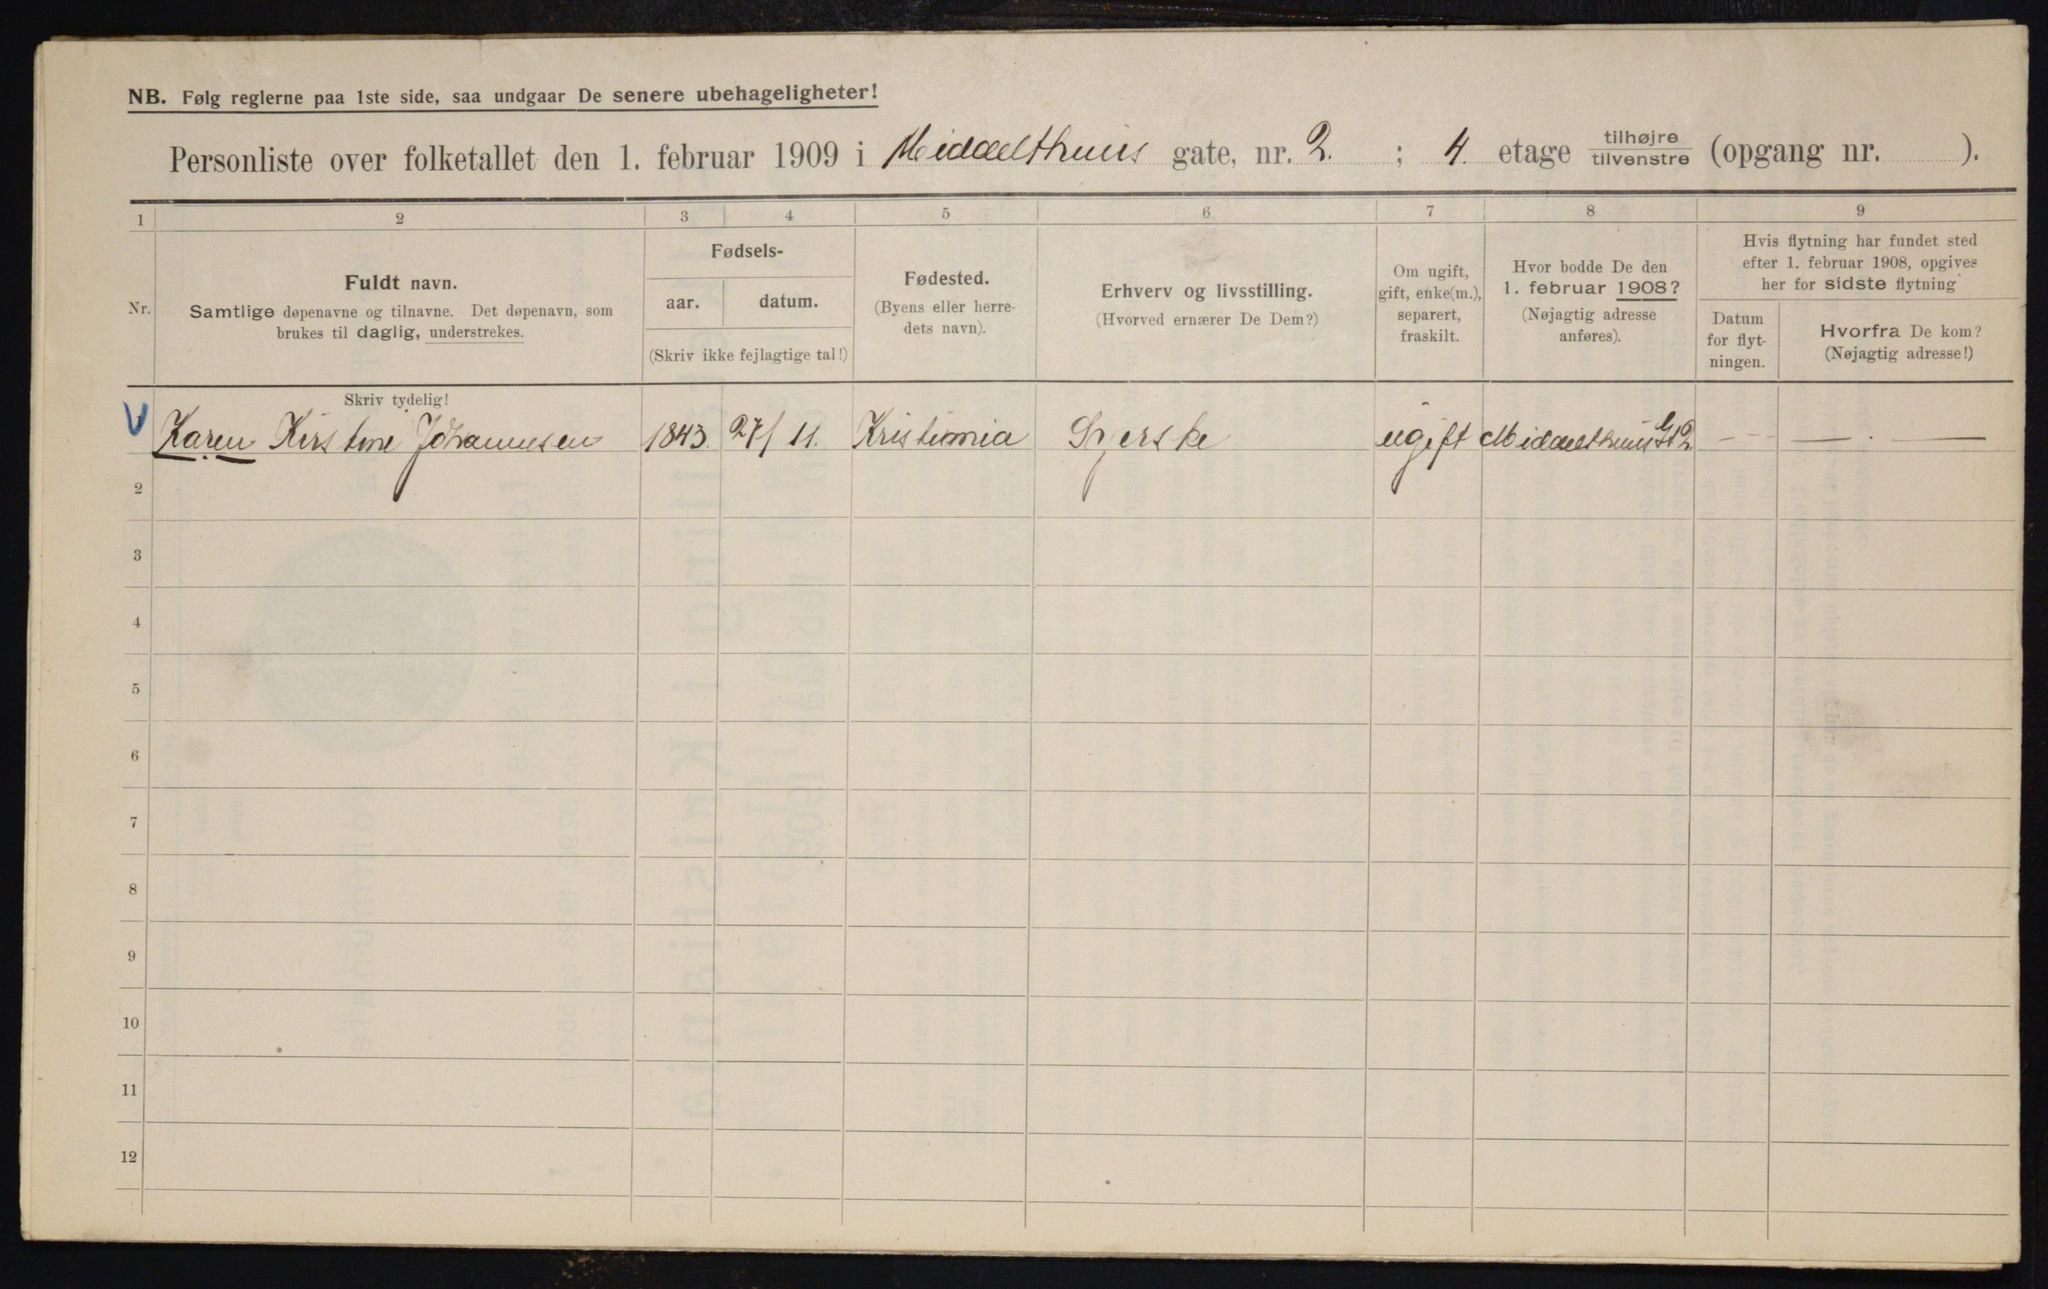 NB. Følg reglerne paa 1ste side, saa undgaar De senere ubehageligheter!
Personliste over folketallet den 1. februar 1909 i Middelthuns gate, nr. 2. ; 4. etage tilhøjre/tilvenstre (opgang nr. ).
1 2 3 4 5 6 7 8 9
Nr.
Fuldt navn.
Samtlige døpenavne og tilnavne. Det døpenavn, som
brukes til daglig, understrekes.
Fødsels-
aar. datum.
(Skriv ikke fejlagtige tal!)
Fødested.
(Byens eller herre-
dets navn).
Erhverv og livsstilling.
(Hvorved ernærer De Dem?)
Om ugift,
gift, enke(m.),
separert,
fraskilt.
Hvor bodde De den
1. februar 1908?
(Nøjagtig adresse
anføres).
Hvis flytning har fundet sted
efter 1. februar 1908, opgives
her for sidste flytning
Datum
for flyt-
ningen.
Hvorfra De kom?
(Nøjagtig adresse!)
Skriv tydelig!
Karen Kirstine Johannesen 1843. 27/11. Kristiania Syerske ugift Middelthuns Gt 2 — — — . —
2
3
4
5
6
7
8
9
10
11
12